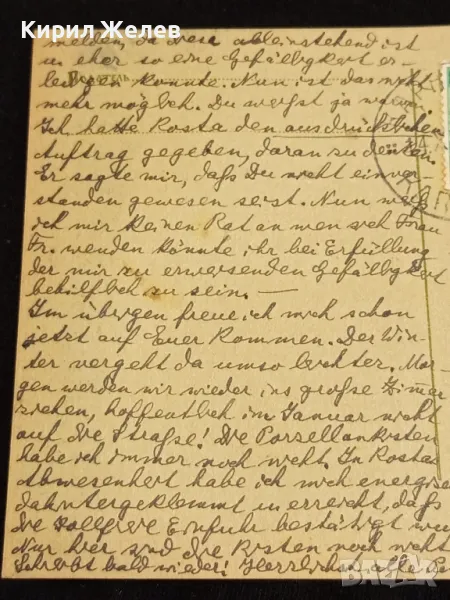 Кирил Желев
melden, da diese alleinstehend ist
u. eher so eine Gefälligkeit er-
weisen konnte. Nun ist das nicht
mehr möglich. Du weißt ja warum.
Ich hatte Kosta den ausdrücklichen
Auftrag gegeben, daran zu denken.
Er sagte mir, daß Du nicht einver-
standen gewesen seist. Nun weiß
ich mir keinen Rat an wen sich Frau
Fr. wenden könnte ihr bei Erfüllung
der mir zu erweisenden Gefälligkeit
behilflich zu sein. —
Im übrigen freue ich mich schon
jetzt auf Euer Kommen. Der Win-
ter vergeht da umso leichter. Mor-
gen werden wir wieder ins große Zimmer
ziehen, hoffentlich im Januar nicht
auf die Straße! Die Porzellankisten
habe ich immer noch nicht. In Kostas
Abwesenheit habe ich mich energisch
dahintergeklemmt u. erreicht, daß
die zollfreie Einfuhr bestätigt
Nur hier sind die Kisten noch nicht
Schreibt bald wieder! Herzlichen, alle
bazar.bg